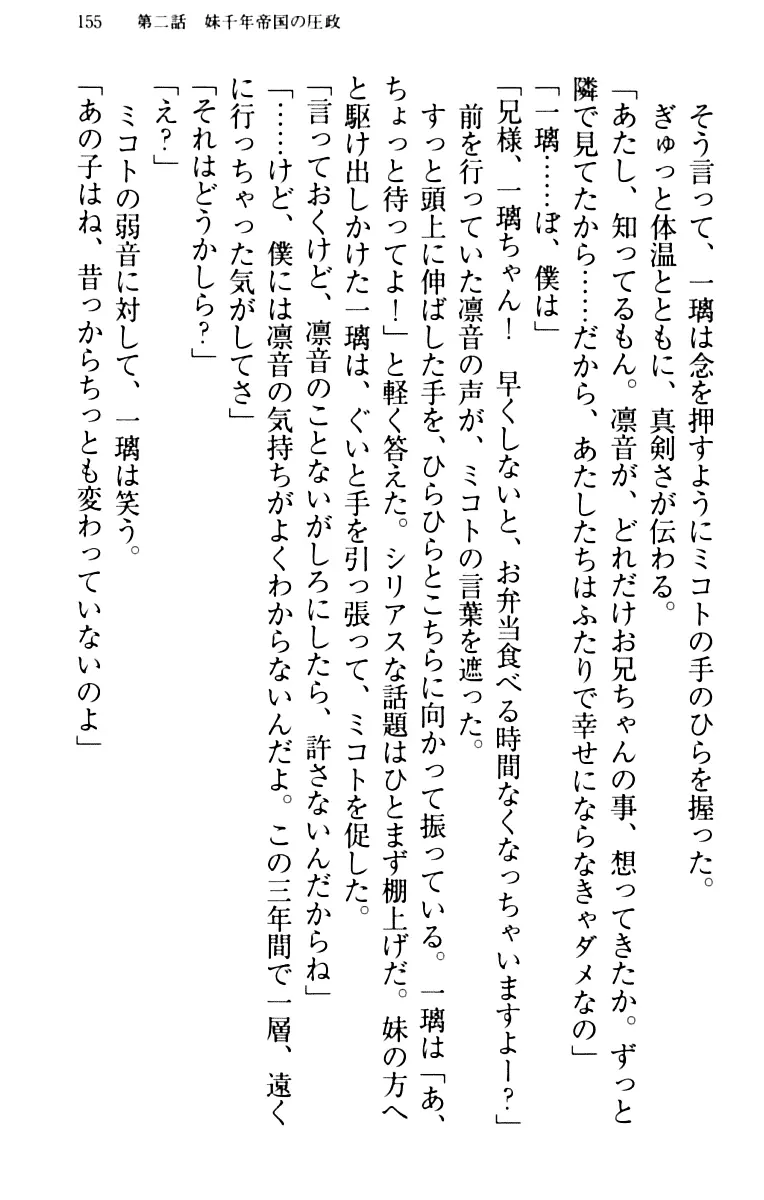 155　第二話　妹千年帝国の圧政
　そう言って、一璃は念を押すようにミコトの手のひらを握った。
　ぎゅっと体温とともに、真剣さが伝わる。
「あたし、知ってるもん。凛音が、どれだけお兄ちゃんの事、想ってきたか。ずっと
隣で見てたから……だから、あたしたちはふたりで幸せにならなきゃダメなの」
「一璃……ぼ、僕は」
「兄様、一璃ちゃん！　早くしないと、お弁当食べる時間なくなっちゃいますよー？」
　前を行っていた凛音の声が、ミコトの言葉を遮った。
　すっと頭上に伸ばした手を、ひらひらとこちらに向かって振っている。一璃は「あ、
ちょっと待ってよ！」と軽く答えた。シリアスな話題はひとまず棚上げだ。妹の方へ
と駆け出しかけた一璃は、ぐいと手を引っ張って、ミコトを促した。
「言っておくけど、凛音のことないがしろにしたら、許さないんだからね」
「……けど、僕には凛音の気持ちがよくわからないんだよ。この三年間で一層、遠く
に行っちゃった気がしてさ」
「それはどうかしら？」
「え？」
　ミコトの弱音に対して、一璃は笑う。
「あの子はね、昔っからちっとも変わっていないのよ」